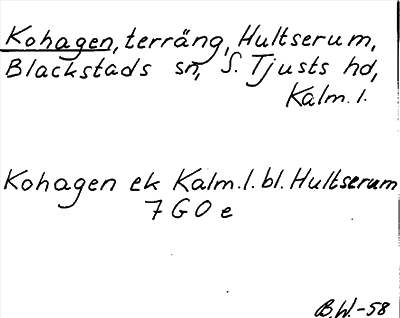 Kohagen, terräng, Hultserum,
Blackstads sn, S. Tjusts hd,
Kalm. l.
Kohagen ek Kalm. l. bl. Hultserum
7 G O e
B.W.-58